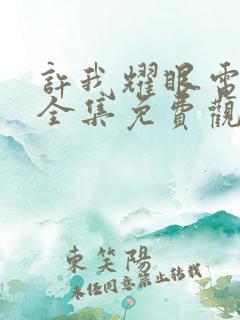 許我耀眼電
全集免費觀
東笑陽
未任同意禁止轉載